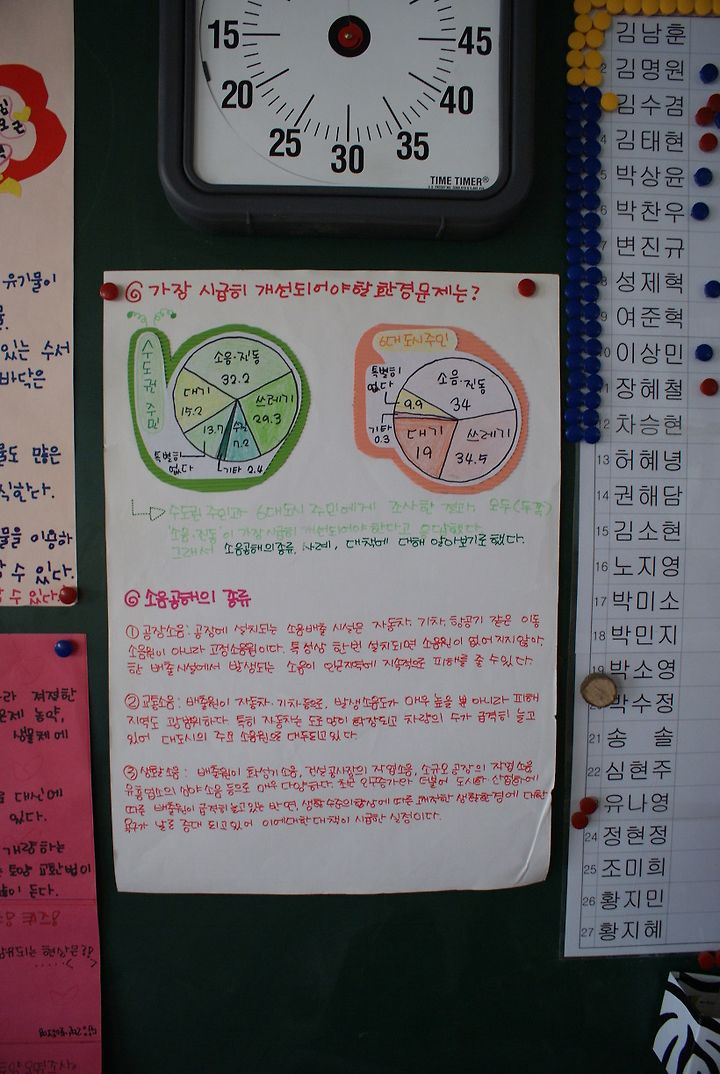 15
45
20
40
25
35
30
TIME TIMER®
가장 시급히 개선되어야할 환경문제는?
수도권 주민
소음·진동
32.2
쓰레기
29.3
수질
7.2
기타 2.4
특별히
없다
13.7
대기
15.2
6대도시주민
소음·진동
34
쓰레기
34.5
대기
19
기타
0.3
특별히
없다
9.9
수도권 주민과 6대도시 주민에게 조사한 결과, 모두(두쪽)
'소음·진동'이 가장 시급히 개선되어야 한다고 응답했다.
그래서 소음공해의종류, 사례, 대책에 대해 알아보기로 했다.
소음공해의 종류
① 공장소음: 공장에 설치되는 소음배출 시설은 자동차, 기차, 항공기 같은 이동
소음원이 아니라 고정소음원이다. 특성상 한번 설치되면 소음원이 없어지지않아,
한 배출시설에서 발생되는 소음이 인근지역에 지속적으로 피해를 줄 수 있다.
② 교통소음: 배출원이 자동차·기차등으로, 발생소음도가 매우 높을 뿐 아니라 피해
지역도 광범위하다. 특히 자동차는 도로망이 확장되고 차량의 수가 급격히 늘고
있어 대도시의 주요 소음원으로 대두되고 있다.
③ 생활소음: 배출원이 확성기소음, 건설공사장의 작업소음, 소규모공장의 작업소음
유흥업소의 심야 소음 등으로 매우 다양하다. 또한 인구증가와 더불어 도시화 산업화에
따른 배출원이 급격히 늘고있는 반면, 생활수준의향상에 따른 쾌적한 생활환경에 대한
욕구가 날로 증대 되고있어 이에대한대책이 시급한 실정이다.
김남훈
2 김명원
김수겸
4 김태현
5 박상윤
6 박찬우
7 변진규
8 성제혁
9 여준혁
10 이상민
11 장혜철
12 차승현
13 허혜녕
14 권해담
15 김소현
16 노지영
17 박미소
18 박민지
19 박소영
박수정
21 송 솔
22 심현주
유나영
24 정현정
25 조미희
26 황지민
27 황지혜
유기물이
있는 수서
바닥은
많은
물을 이용하
수 있다.
수 있다.
농약,
대신에
있다.
개량하는
토양
든다.